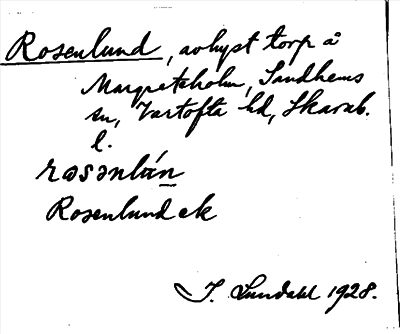 Rosenlund, avhyst torp å
Margreteholm, Sandhems
sn, Vartofta hd, Skarab.
l.
rosənlún
Rosenlund ek
I. Lundahl 1928.